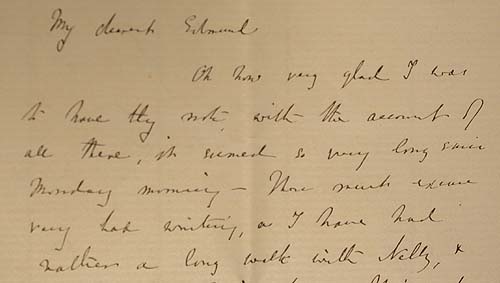 My dearest Edmund
Oh how very glad I was
to have thy note, with the account of
all there, it seemed so very long since
Monday morning – Thou must excuse
very bad writing, as I have had
rather a long walk with Nelly, &